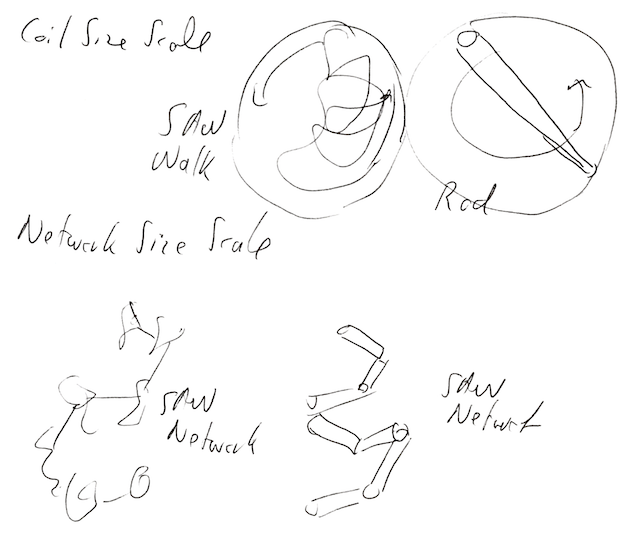 Coil Size Scale
SAW
Walk
Rod
Network Size Scale
SAW
Network
SAW
Network